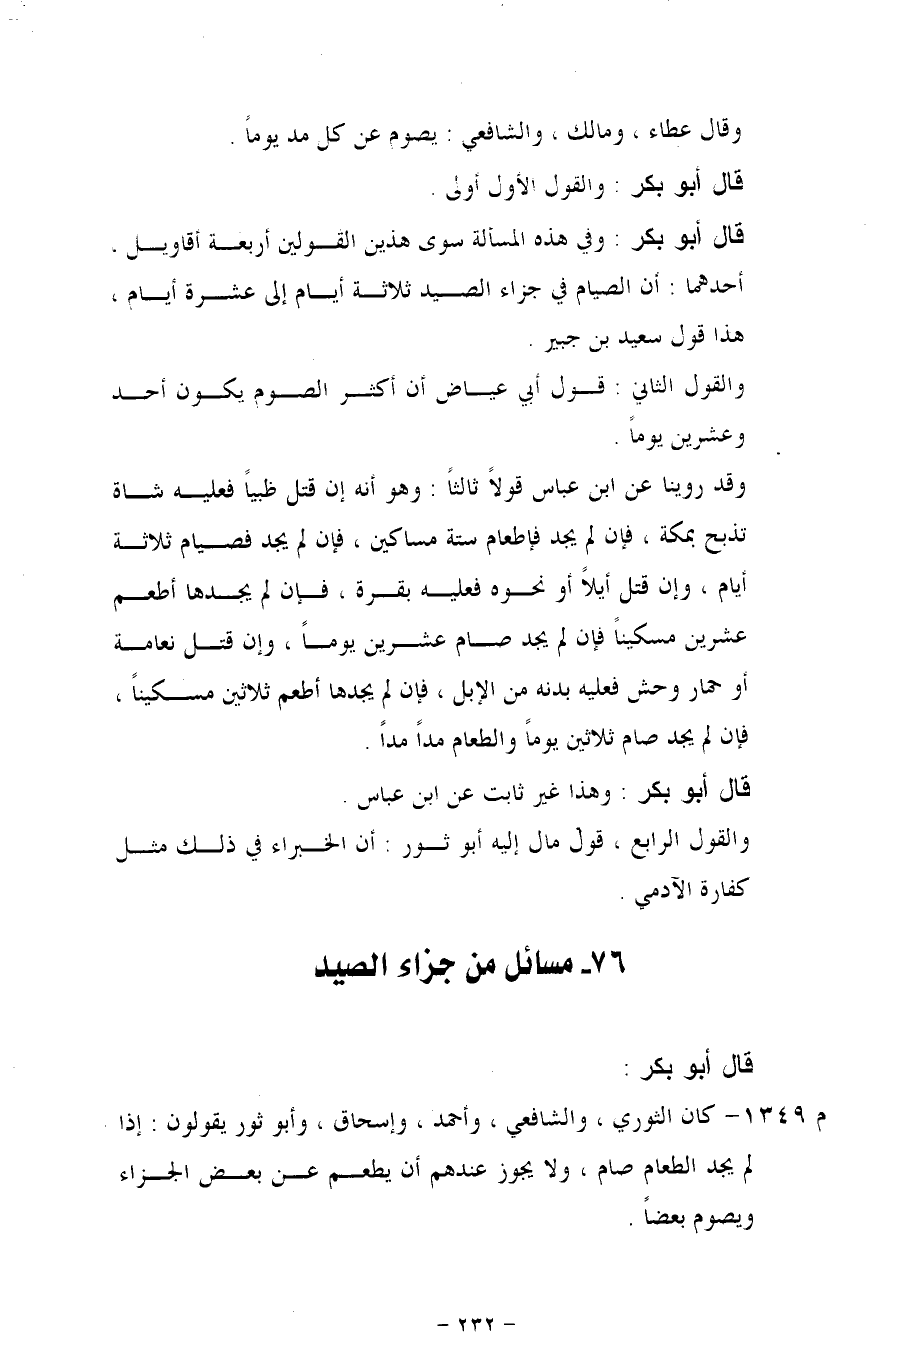 وقال عطاء ، ومالك ، والشافعي : يصوم عن كل مد يوماً .
قال أبو بكر : والقول الأول أولى .
قال أبو بكر : وفي هذه المسألة سوى هذين القولين أربعة أقاويل .
أحدهما : أن الصيام في جزاء الصيد ثلاثة أيام إلى عشرة أيام ،
هذا قول سعيد بن جبير .
والقول الثاني : قول أبي عياض أن أكثر الصوم يكون أحد
وعشرين يوماً .
وقد روينا عن ابن عباس قولاً ثالثاً : وهو أنه إن قتل ظبياً فعليه شاة
تذبح بمكة ، فإن لم يجد فإطعام ستة مساكين ، فإن لم يجد فصيام ثلاثة
أيام ، وإن قتل أيلاً أو نحوه فعليه بقرة ، فإن لم يجدها أطعم
عشرين مسكيناً فإن لم يجد صام عشرين يوماً ، وإن قتل نعامة
أو حمار وحش فعليه بدنه من الإبل ، فإن لم يجدها أطعم ثلاثين مسكيناً ،
فإن لم يجد صام ثلاثين يوماً والطعام مداً مداً .
قال أبو بكر : وهذا غير ثابت عن ابن عباس .
والقول الرابع ، قول مال إليه أبو ثور : أن الخبراء في ذلك مثل
كفارة الآدمي .
٧٦ـ مسائل من جزاء الصيد
قال أبو بكر :
م ١٣٤٩– كان الثوري ، والشافعي ، وأحمد ، وإسحاق ، وأبو ثور يقولون : إذا
لم يجد الطعام صام ، ولا يجوز عندهم أن يطعم عن بعض الجزاء
ويصوم بعضاً .
– ٢٣٢ –